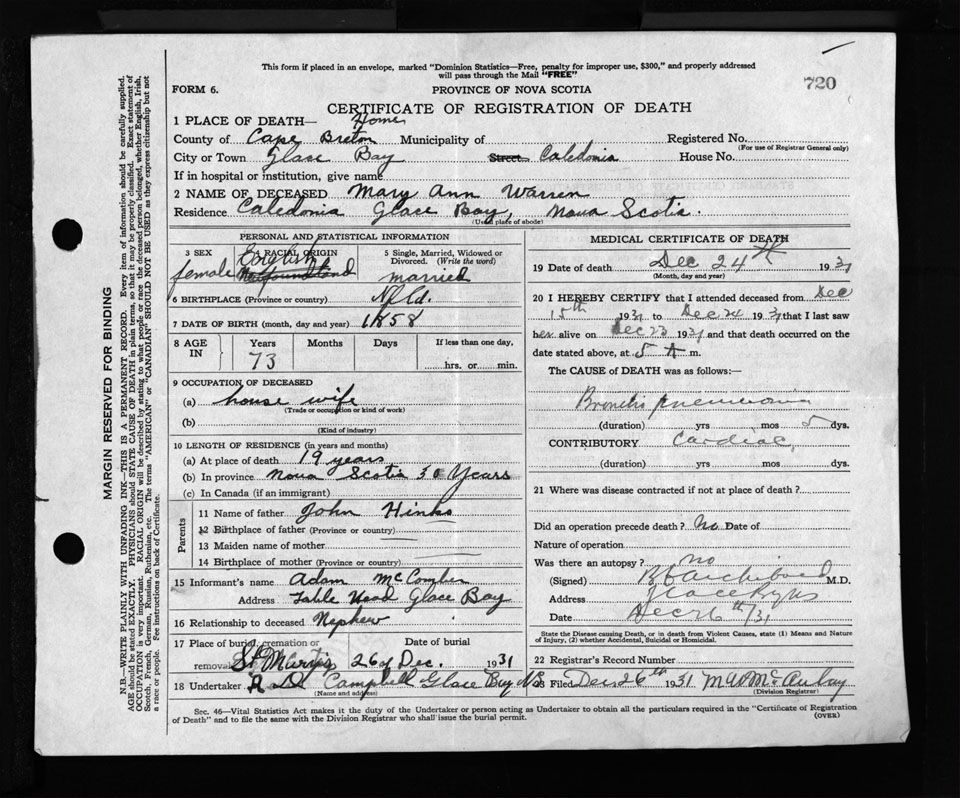 This form if placed in an envelope, marked "Dominion Statistics—Free, penalty for improper use, $300," and properly addressed
will pass through the Mail "FREE"
720
FORM 6.
PROVINCE OF NOVA SCOTIA
CERTIFICATE OF REGISTRATION OF DEATH
1 PLACE OF DEATH— Home
County of Cape Breton Municipality of Registered No.
(For use of Registrar General only)
City or Town Glace Bay Street Caledonia House No.
If in hospital or institution, give name
2 NAME OF DECEASED Mary Ann Warren
Residence Caledonia Glace Bay, Nova Scotia.
(Usual place of abode)
PERSONAL AND STATISTICAL INFORMATION
3 SEX 4 RACIAL ORIGIN 5 Single, Married, Widowed or
Divorced. (Write the word)
female English Newfoundland married
6 BIRTHPLACE (Province or country) Nfld.
7 DATE OF BIRTH (month, day and year) 1858
8 AGE IN Years Months Days If less than one day,
73 hrs. or min.
9 OCCUPATION OF DECEASED
(a) house wife
(Trade or occupation or kind of work)
(b)
(Kind of industry)
10 LENGTH OF RESIDENCE (in years and months)
(a) At place of death 19 years
(b) In province Nova Scotia 30 Years
(c) In Canada (if an immigrant)
Parents
11 Name of father John Hinks
12 Birthplace of father (Province or country)
13 Maiden name of mother
14 Birthplace of mother (Province or country)
15 Informant's name Adam McComber
Address Table Head Glace Bay
16 Relationship to deceased Nephew
17 Place of burial, cremation or Date of burial
removal St Mary's 26 of Dec. 1931
18 Undertaker Campbell Glace Bay NS
(Name and address)
MEDICAL CERTIFICATE OF DEATH
19 Date of death Dec 24th 1931
(Month, day and year)
20 I HEREBY CERTIFY that I attended deceased from Dec
15th 1931 to Dec 24 1931 that I last saw
her alive on Dec 23 1931 and that death occurred on the
date stated above, at 5 A m.
The CAUSE of DEATH was as follows:—
Broncho pneumonia
(duration) yrs mos 5 dys.
CONTRIBUTORY Cardiac
(duration) yrs mos dys.
21 Where was disease contracted if not at place of death?
Did an operation precede death? No Date of
Nature of operation
Was there an autopsy? no
(Signed) Archibald M.D.
Address Glace Bay NS
Date Dec 26th/31
State the Disease causing Death, or in death from Violent Causes, state (1) Means and Nature
of Injury, (2) whether Accidental, Suicidal or Homicidal.
22 Registrar's Record Number
23 Filed Dec 26th 1931
(Division Registrar)
Sec. 46—Vital Statistics Act makes it the duty of the Undertaker or person acting as Undertaker to obtain all the particulars required in the "Certificate of Registration
of Death" and to file the same with the Division Registrar who shall issue the burial permit.
(OVER)
MARGIN RESERVED FOR BINDING
N.B.—WRITE PLAINLY WITH UNFADING INK—THIS IS A PERMANENT RECORD. Every item of information should be carefully supplied.
AGE should be stated EXACTLY. PHYSICIANS should STATE CAUSE OF DEATH in plain terms, so that it may be properly classified. Exact statement of
OCCUPATION is very important. RACIAL ORIGIN will be described by stating to what people or race the deceased person belonged, whether English, Irish,
Scotch, French, German, Russian, Ruthenian, etc. The terms "AMERICAN" or "CANADIAN" SHOULD NOT BE USED as they express citizenship but not
a race or people. See instructions on back of Certificate.